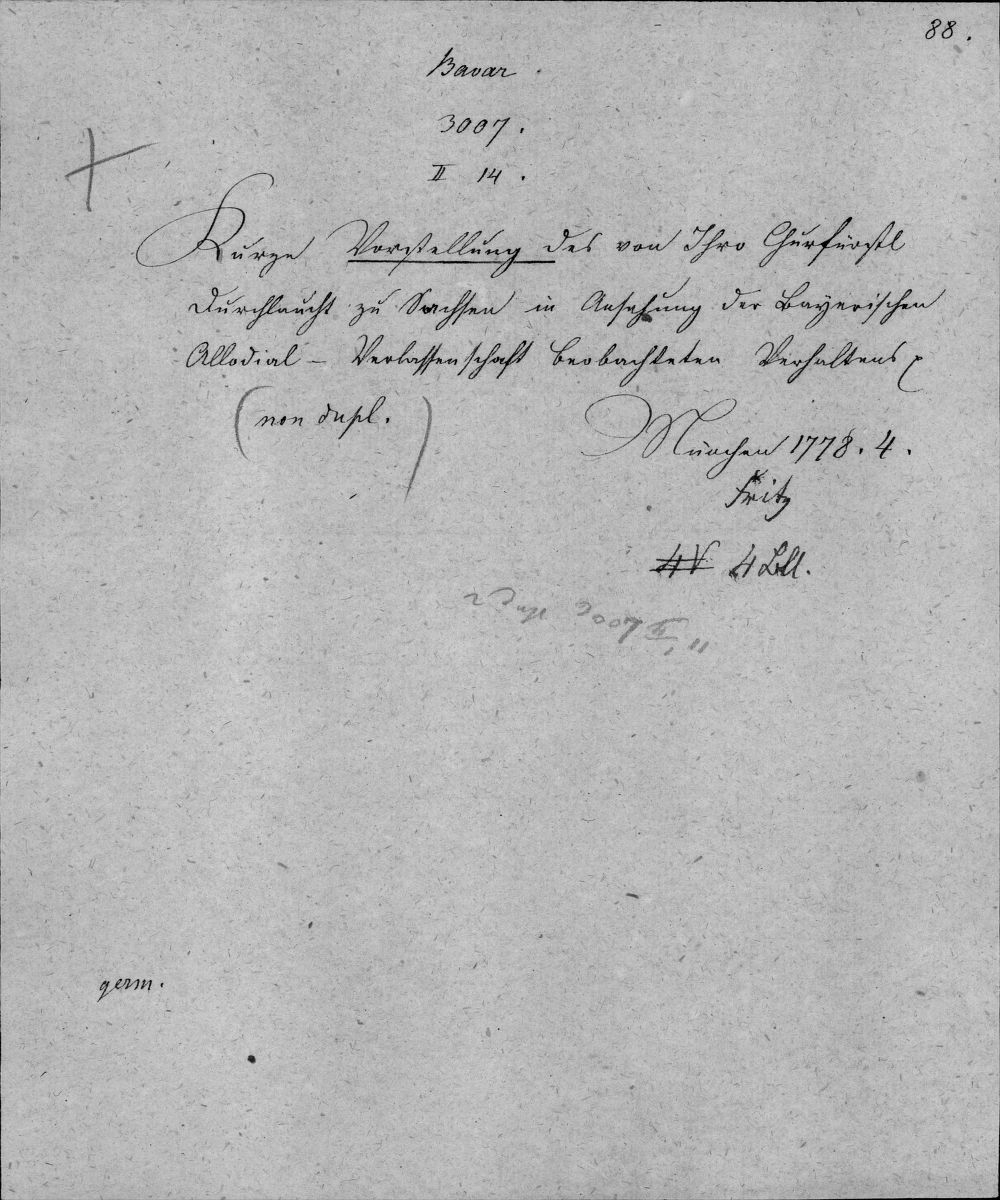 88.
Bavar.
3007.
II 14.
Kurze Vorstellung des von Ihro Churfürstl
Durchlaucht zu Sachsen in Ansehung der Bayerischen
Allodial - Verlassenschaft beobachteten Verhaltens
(non dupl.)
München 1778. 4.
Fritz
4 Bll.
2 Dupl 3007 II, 11
germ.